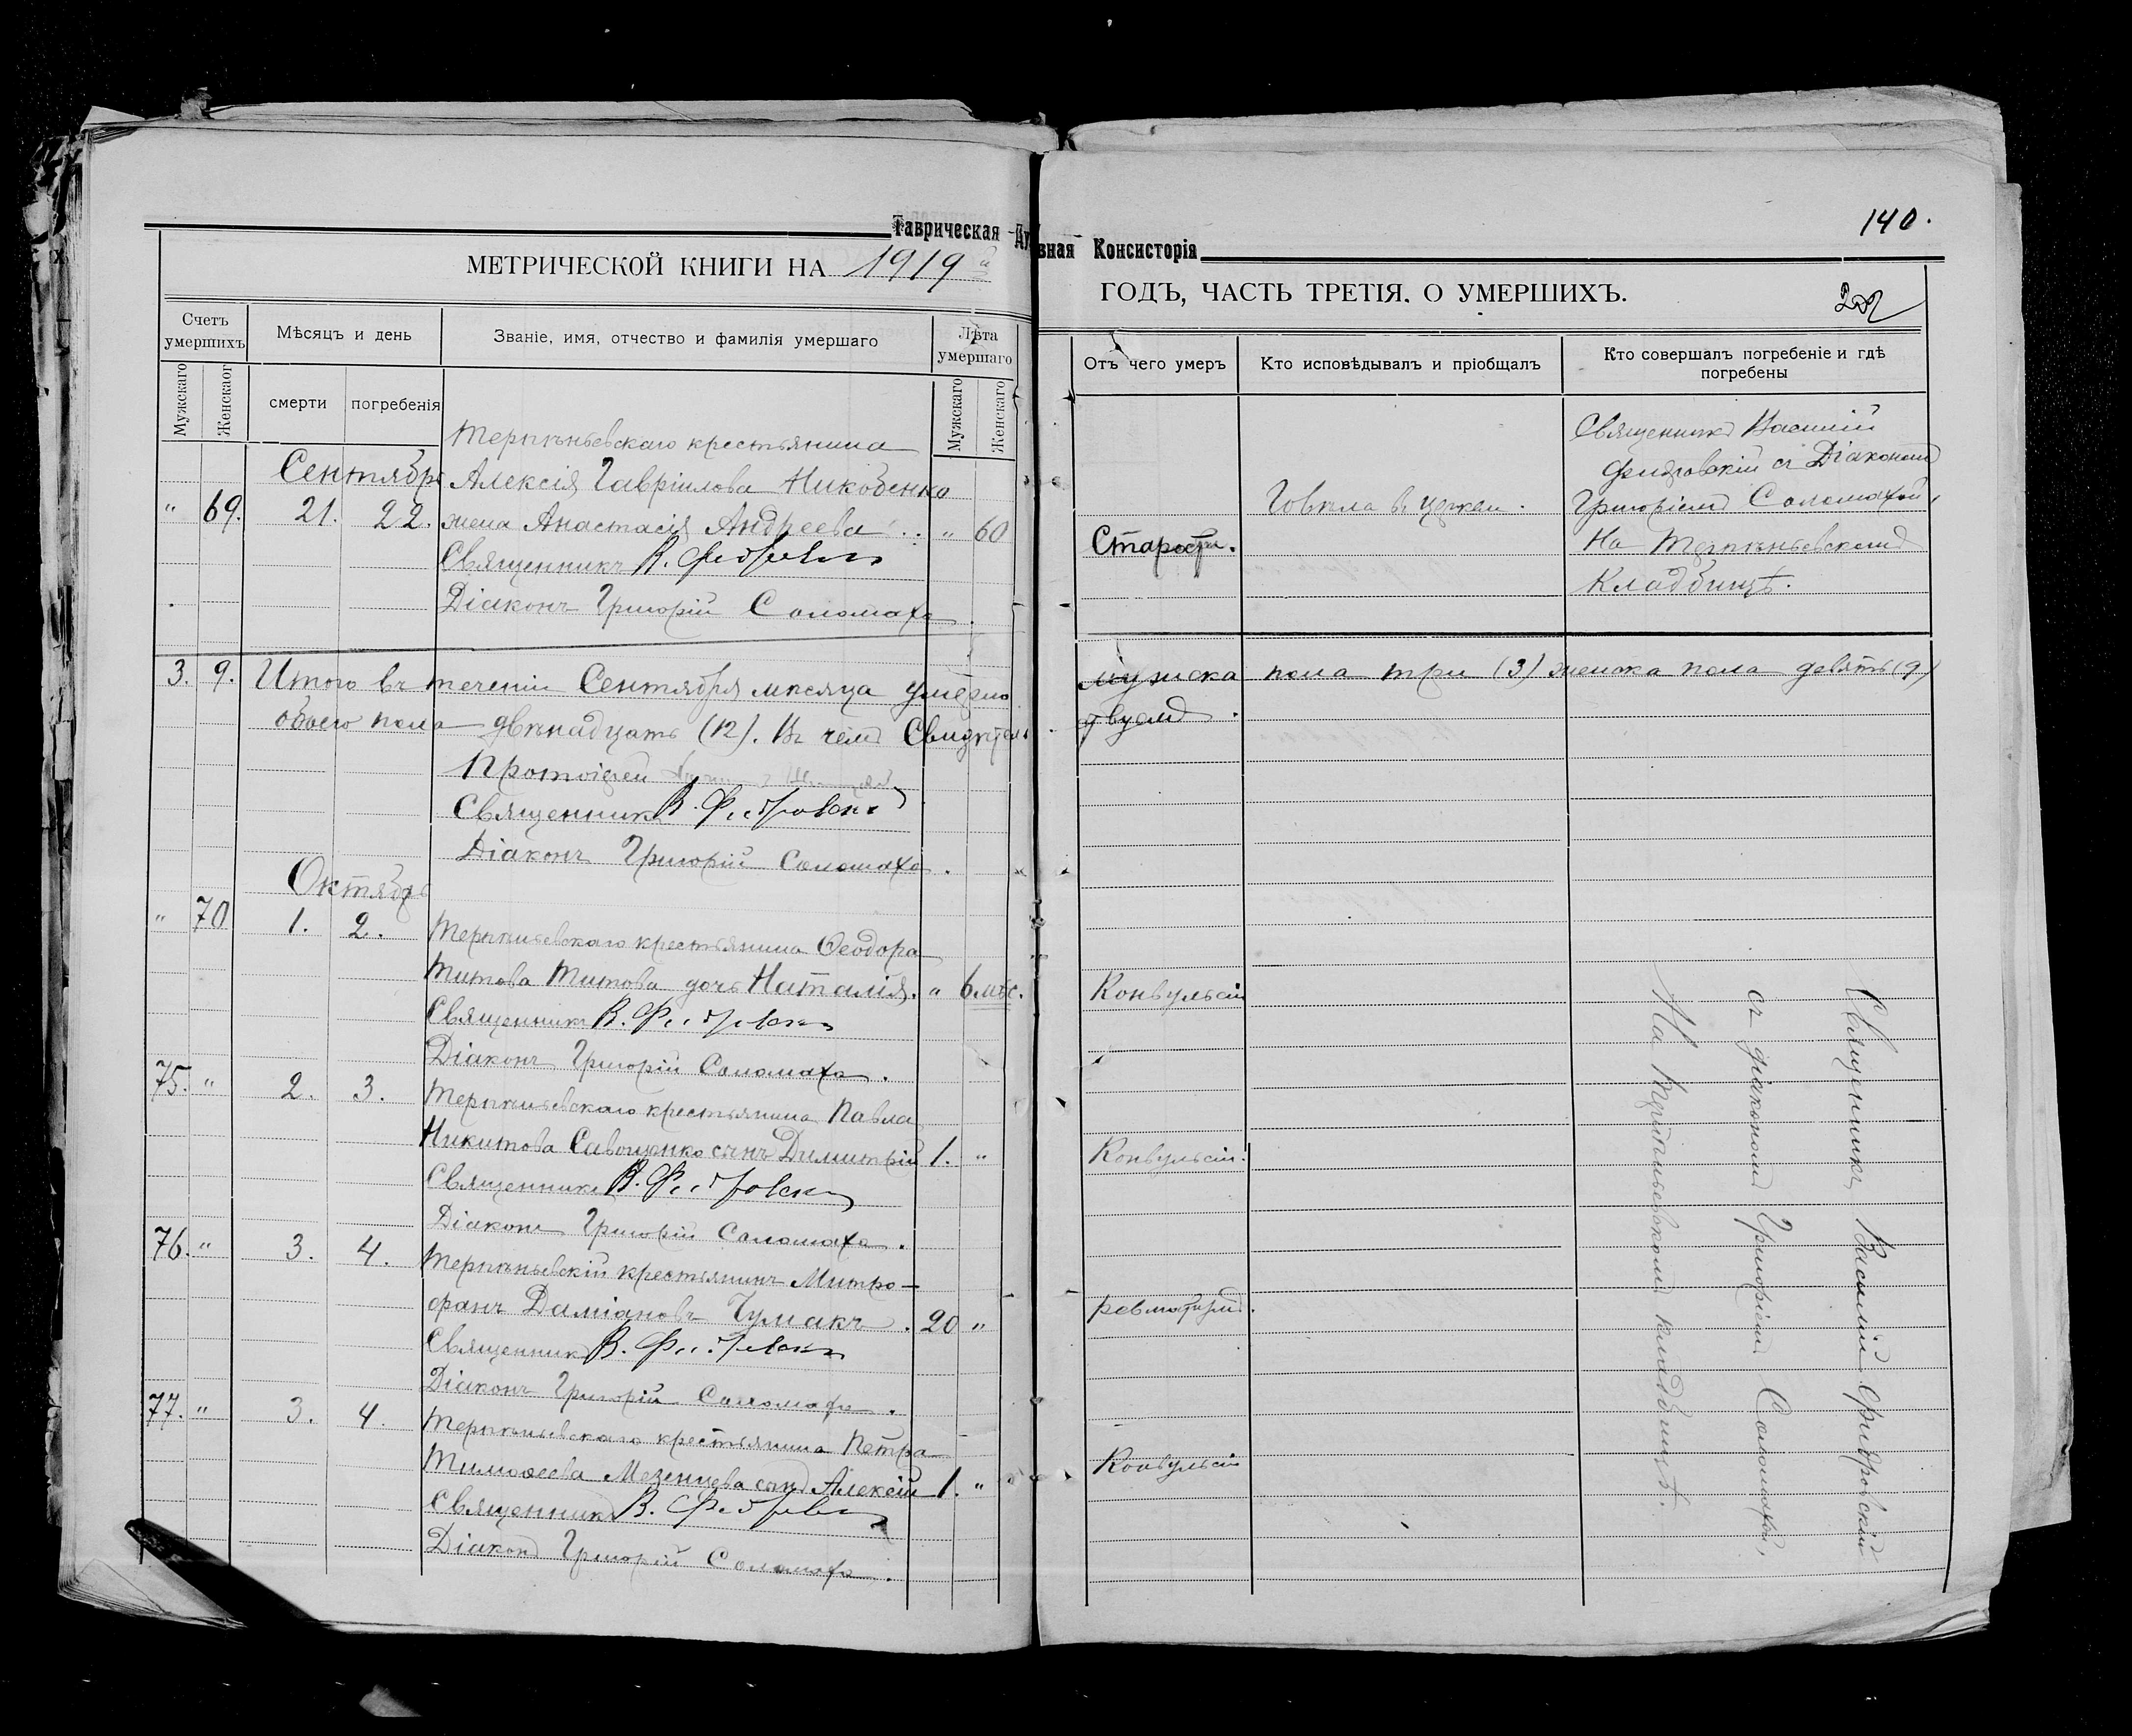 Таврическая Ду
вная Консисторія
140.
МЕТРИЧЕСКОЙ КНИГИ НА 1919 й
ГОДЪ, ЧАСТЬ ТРЕТІЯ. О УМЕРШИХЪ.
Счетъ умершихъ
Мѣсяцъ и день
Званіе, имя, отчество и фамилія умершаго
Лѣта умершаго
Отъ чего умеръ
Кто исповѣдывалъ и пріобщалъ
Кто совершалъ погребеніе и гдѣ погребены
Мужскаго
Женскаог
смерти
погребенія
Мужскаго
Женскаго
Терпѣньевскаго крестьянина
Сентябрь Алексія Гавріилова Никобенко
" 69. 21. 22. жена Анастасія Андреева . . " 60
Священникъ В.
Діаконъ Григорій Соломаха.
Старости.
Говѣла въ церкви.
Священникъ Василій
съ Діакономъ
Григоріемъ Соломахой,
На Терпѣньевскомъ
Кладбищѣ.
3. 9. Итого въ теченіи Сентября мѣсяца умерло мужска пола три (3) женска пола девять (9)
обоего пола двѣнадцать (12). Въ чемъ Свидѣтель
ствуемъ.
Протоіерей
Священникъ В.
Діаконъ Григорій Соломаха.
Октябрь
" 70 1. 2. Терпѣньевскаго крестьянина Ѳеодора
Титова Титова дочь Наталія. " 6 мѣс. Конвульсіи
Священникъ В.
Діаконъ Григорій Соломаха.
75. " 2. 3. Терпѣньевскаго крестьянина Павла
Никитова Савощенко сынъ Димитрій 1. " Конвульсіи.
Священникъ В.
Діаконъ Григорій Соломаха.
76. " 3. 4. Терпѣньевскій крестьянинъ Митро-
фанъ Даміановъ Чумакъ. 20 " ревматизмъ.
Священникъ В.
Діаконъ Григорій Соломаха.
77. " 3. 4. Терпѣньевскаго крестьянина Петра
Тимоѳеева Мезенцева сынъ Алексій 1. " Конвульсіи
Священникъ В.
Діаконъ Григорій Соломаха.
Священникъ Василій
съ діакономъ Григоріемъ Соломахой,
На Терпѣньевскомъ кладбищѣ.